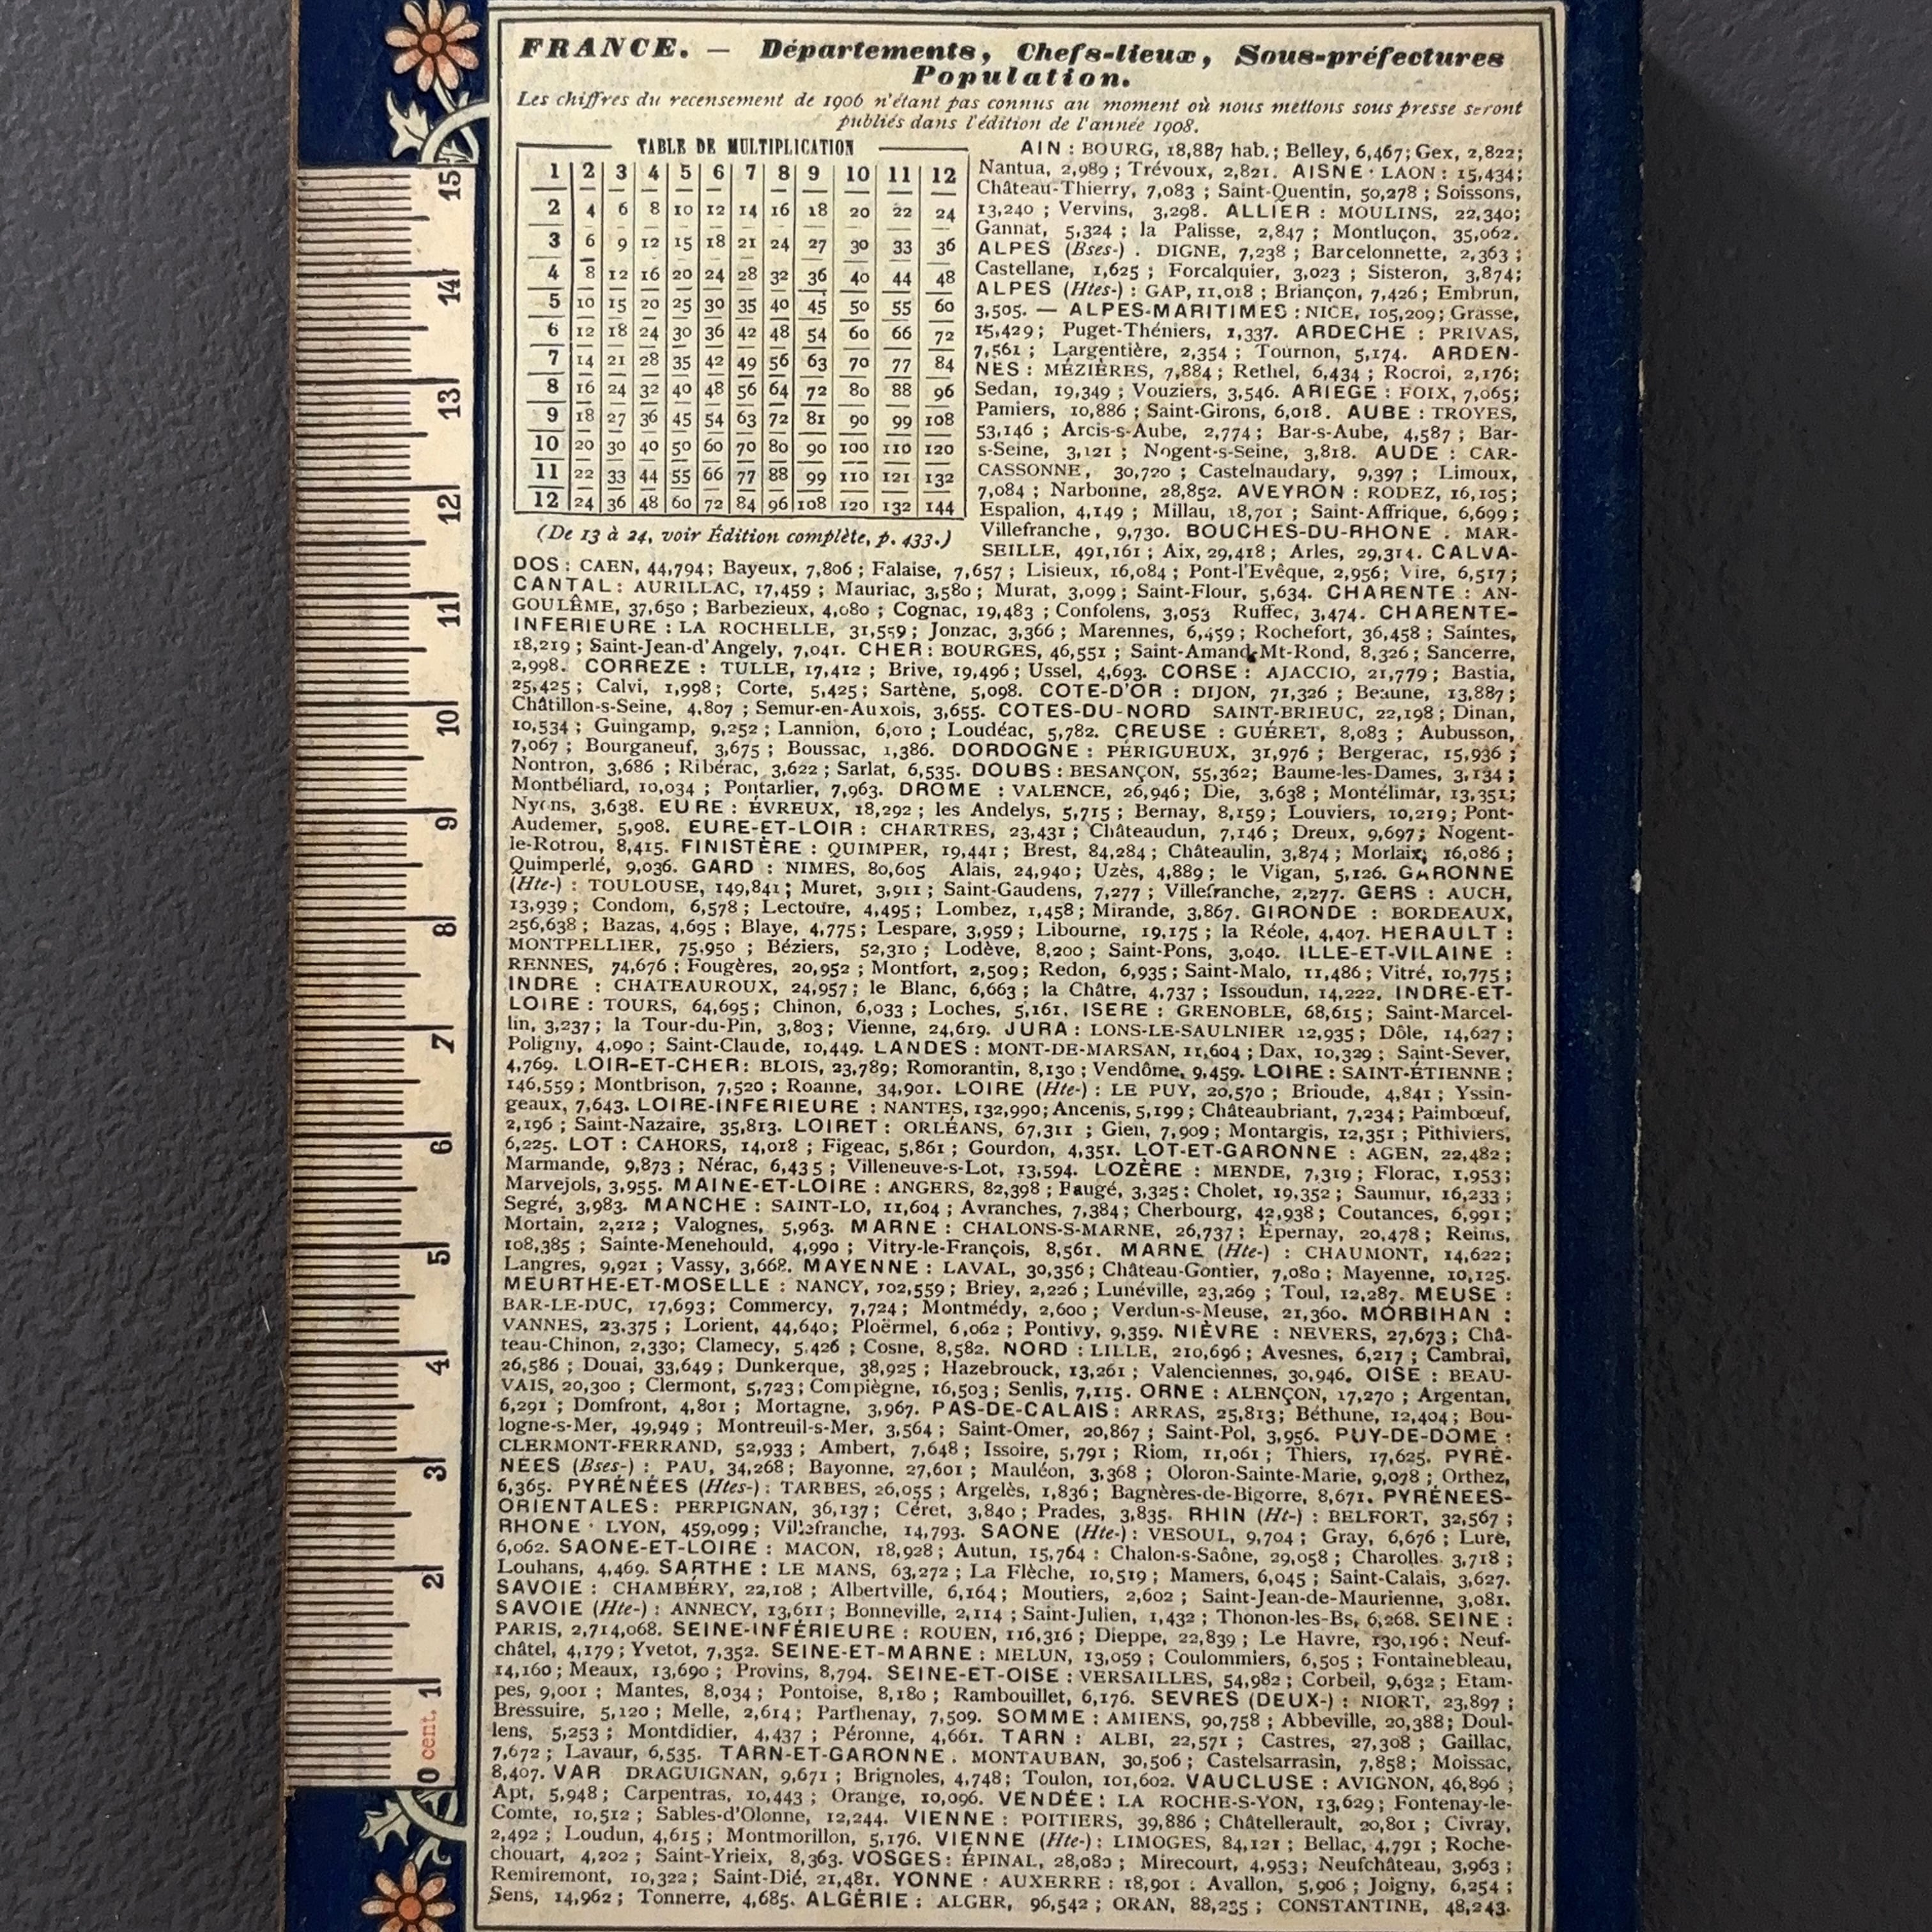 FRANCE. — Départements, Chefs-lieux, Sous-préfectures
Population.
Les chiffres du recensement de 1906 n'étant pas connus au moment où nous mettons sous presse seront
publiés dans l'édition de l'année 1908.
TABLE DE MULTIPLICATION
1 2 3 4 5 6 7 8 9 10 11 12
2 4 6 8 10 12 14 16 18 20 22 24
3 6 9 12 15 18 21 24 27 30 33 36
4 8 12 16 20 24 28 32 36 40 44 48
5 10 15 20 25 30 35 40 45 50 55 60
6 12 18 24 30 36 42 48 54 60 66 72
7 14 21 28 35 42 49 56 63 70 77 84
8 16 24 32 40 48 56 64 72 80 88 96
9 18 27 36 45 54 63 72 81 90 99 108
10 20 30 40 50 60 70 80 90 100 110 120
11 22 33 44 55 66 77 88 99 110 121 132
12 24 36 48 60 72 84 96 108 120 132 144
(De 13 à 24, voir Édition complète, p. 433.)
AIN : BOURG, 18,887 hab.; Belley, 6,467; Gex, 2,822;
Nantua, 2,989 ; Trévoux, 2,821. AISNE · LAON : 15,434;
Château-Thierry, 7,083 ; Saint-Quentin, 50,278 ; Soissons,
13,240 ; Vervins, 3,298. ALLIER : MOULINS, 22,340;
Gannat, 5,324 ; la Palisse, 2,847 ; Montluçon, 35,062.
ALPES (Bses-) . DIGNE, 7,238 ; Barcelonnette, 2,363 ;
Castellane, 1,625 ; Forcalquier, 3,023 ; Sisteron, 3,874;
ALPES (Htes-) : GAP, 11,018 ; Briançon, 7,426; Embrun,
3,505. — ALPES-MARITIMES : NICE, 105,209; Grasse,
15,429; Puget-Théniers, 1,337. ARDECHE : PRIVAS,
7,561 ; Largentière, 2,354 ; Tournon, 5,174. ARDEN-
NES : MÉZIÈRES, 7,884; Rethel, 6,434 ; Rocroi, 2,176;
Sedan, 19,349 ; Vouziers, 3,546. ARIEGE : FOIX, 7,065;
Pamiers, 10,886 ; Saint-Girons, 6,018. AUBE : TROYES,
53,146 ; Arcis-s-Aube, 2,774; Bar-s-Aube, 4,587 ; Bar-
s-Seine, 3,121 ; Nogent-s-Seine, 3,818. AUDE : CAR-
CASSONNE, 30,720 ; Castelnaudary, 9,397 ; Limoux,
7,084 ; Narbonne, 28,852. AVEYRON : RODEZ, 16,105;
Espalion, 4,149 ; Millau, 18,701 ; Saint-Affrique, 6,699 ;
Villefranche, 9,730. BOUCHES-DU-RHONE : MAR-
SEILLE, 491,161 ; Aix, 29,418 ; Arles, 29,314. CALVA-
DOS : CAEN, 44,794; Bayeux, 7,806 ; Falaise, 7,657 ; Lisieux, 16,084 ; Pont-l'Evêque, 2,956; Vire, 6,517;
CANTAL : AURILLAC, 17,459 ; Mauriac, 3,580 ; Murat, 3,099 ; Saint-Flour, 5,634. CHARENTE : AN-
GOULÊME, 37,650 ; Barbezieux, 4,080 ; Cognac, 19,483 ; Confolens, 3,053 Ruffec, 3,474. CHARENTE-
INFERIEURE : LA ROCHELLE, 31,559 ; Jonzac, 3,366 ; Marennes, 6,459 ; Rochefort, 36,458 ; Saintes,
18,219 ; Saint-Jean-d'Angely, 7,041. CHER : BOURGES, 46,551 ; Saint-Amand-Mt-Rond, 8,326; Sancerre,
2,998. CORREZE : TULLE, 17,412 ; Brive, 19,496; Ussel, 4,693. CORSE : AJACCIO, 21,779 ; Bastia,
25,425 ; Calvi, 1,998; Corte, 5,425; Sartène, 5,098. COTE-D'OR : DIJON, 71,326 ; Beaune, 13,887 ;
Châtillon-s-Seine, 4,807 ; Semur-en-Auxois, 3,655. COTES-DU-NORD SAINT-BRIEUC, 22,198 ; Dinan,
10,534 ; Guingamp, 9,252 ; Lannion, 6,010 ; Loudéac, 5,782. CREUSE : GUÉRET, 8,083 ; Aubusson,
7,067 ; Bourganeuf, 3,675 ; Boussac, 1,386. DORDOGNE : PÉRIGUEUX, 31,976 ; Bergerac, 15,936 ;
Nontron, 3,686 ; Ribérac, 3,622 ; Sarlat, 6,535. DOUBS : BESANÇON, 55,362; Baume-les-Dames, 3,134 ;
Montbéliard, 10,034 ; Pontarlier, 7,963. DROME : VALENCE, 26,946; Die, 3,638 ; Montélimar, 13,351;
Nyons, 3,638. EURE : ÉVREUX, 18,292 ; les Andelys, 5,715 ; Bernay, 8,159 ; Louviers, 10,219; Pont-
Audemer, 5,908. EURE-ET-LOIR : CHARTRES, 23,431 ; Châteaudun, 7,146 ; Dreux, 9,697; Nogent-
le-Rotrou, 8,415. FINISTÈRE : QUIMPER, 19,441 ; Brest, 84,284 ; Châteaulin, 3,874 ; Morlaix; 16,086 ;
Quimperlé, 9,036. GARD : NIMES, 80,605 Alais, 24,940; Uzès, 4,889 ; le Vigan, 5,126. GARONNE
(Hte-) : TOULOUSE, 149,841 ; Muret, 3,911 ; Saint-Gaudens, 7,277 ; Villefranche, 2,277. GERS : AUCH,
13,939 ; Condom, 6,578 ; Lectoure, 4,495 ; Lombez, 1,458 ; Mirande, 3,867. GIRONDE : BORDEAUX,
256,638 ; Bazas, 4,695 ; Blaye, 4,775 ; Lespare, 3,959 ; Libourne, 19,175 ; la Réole, 4,407. HERAULT :
MONTPELLIER, 75,950 ; Béziers, 52,310 ; Lodève, 8,200 ; Saint-Pons, 3,040. ILLE-ET-VILAINE :
RENNES, 74,676 ; Fougères, 20,952 ; Montfort, 2,509 ; Redon, 6,935 ; Saint-Malo, 11,486 ; Vitré, 10,775 ;
INDRE : CHATEAUROUX, 24,957 ; le Blanc, 6,663 ; la Châtre, 4,737 ; Issoudun, 14,222. INDRE-ET-
LOIRE : TOURS, 64,695 ; Chinon, 6,033 ; Loches, 5,161. ISERE : GRENOBLE, 68,615 ; Saint-Marcel-
lin, 3,237 ; la Tour-du-Pin, 3,803 ; Vienne, 24,619. JURA : LONS-LE-SAULNIER 12,935 ; Dôle, 14,627 ;
Poligny, 4,090 ; Saint-Claude, 10,449. LANDES : MONT-DE-MARSAN, 11,604 ; Dax, 10,329 ; Saint-Sever,
4,769. LOIR-ET-CHER : BLOIS, 23,789; Romorantin, 8,130 ; Vendôme, 9,459. LOIRE : SAINT-ÉTIENNE ;
146,559 ; Montbrison, 7,520 ; Roanne, 34,901. LOIRE (Hte-) : LE PUY, 20,570 ; Brioude, 4,841 ; Yssin-
geaux, 7,643. LOIRE-INFERIEURE : NANTES, 132,990; Ancenis, 5,199 ; Châteaubriant, 7,234 ; Paimbœuf,
2,196 ; Saint-Nazaire, 35,813. LOIRET : ORLÉANS, 67,311 ; Gien, 7,909 ; Montargis, 12,351 ; Pithiviers,
6,225. LOT : CAHORS, 14,018 ; Figeac, 5,861 ; Gourdon, 4,351. LOT-ET-GARONNE : AGEN, 22,482 ;
Marmande, 9,873 ; Nérac, 6,435 ; Villeneuve-s-Lot, 13,594. LOZÈRE : MENDE, 7,319 ; Florac, 1,953 ;
Marvejols, 3,955. MAINE-ET-LOIRE : ANGERS, 82,398 ; Baugé, 3,325 : Cholet, 19,352 ; Saumur, 16,233 ;
Segré, 3,983. MANCHE : SAINT-LO, 11,604 ; Avranches, 7,384 ; Cherbourg, 42,938 ; Coutances, 6,991 ;
Mortain, 2,212 ; Valognes, 5,963. MARNE : CHALONS-S-MARNE, 26,737 ; Épernay, 20,478 ; Reims,
108,385 ; Sainte-Menehould, 4,990 ; Vitry-le-François, 8,561. MARNE (Hte-) : CHAUMONT, 14,622 ;
Langres, 9,921 ; Vassy, 3,668. MAYENNE : LAVAL, 30,356 ; Château-Gontier, 7,080 ; Mayenne, 10,125.
MEURTHE-ET-MOSELLE : NANCY, 102,559 ; Briey, 2,226 ; Lunéville, 23,269 ; Toul, 12,287. MEUSE :
BAR-LE-DUC, 17,693 ; Commercy, 7,724 ; Montmédy, 2,600 ; Verdun-s-Meuse, 21,360. MORBIHAN :
VANNES, 23.375 ; Lorient, 44,640; Ploërmel, 6,062 ; Pontivy, 9,359. NIÈVRE : NEVERS, 27,673 ; Châ-
teau-Chinon, 2,330; Clamecy, 5.426 ; Cosne, 8,582. NORD : LILLE, 210,696 ; Avesnes, 6,217 ; Cambrai,
26,586 ; Douai, 33,649 ; Dunkerque, 38,925 ; Hazebrouck, 13,261 ; Valenciennes, 30,946. OISE : BEAU-
VAIS, 20,300 ; Clermont, 5,723 ; Compiègne, 16,503 ; Senlis, 7,115. ORNE : ALENÇON, 17,270 ; Argentan,
6,291 ; Domfront, 4,801 ; Mortagne, 3,967. PAS-DE-CALAIS : ARRAS, 25,813; Béthune, 12,404 ; Bou-
logne-s-Mer, 49,949 ; Montreuil-s-Mer, 3,564 ; Saint-Omer, 20,867 ; Saint-Pol, 3,956. PUY-DE-DOME :
CLERMONT-FERRAND, 52,933 ; Ambert, 7,648 ; Issoire, 5,791 ; Riom, 11,061 ; Thiers, 17,625. PYRÉ-
NÉES (Bses-) : PAU, 34,268 ; Bayonne, 27,601 ; Mauléon, 3,368 ; Oloron-Sainte-Marie, 9,078 ; Orthez,
6,365. PYRÉNÉES (Htes-) : TARBES, 26,055 ; Argelès, 1,836 ; Bagnères-de-Bigorre, 8,671. PYRÉNEES-
ORIENTALES : PERPIGNAN, 36,137 ; Céret, 3,840 ; Prades, 3,835. RHIN (Ht-) : BELFORT, 32,567 ;
RHONE · LYON, 459,099 ; Villefranche, 14,793. SAONE (Hte-) : VESOUL, 9,704 ; Gray, 6,676 ; Lure,
6,062. SAONE-ET-LOIRE : MACON, 18,928 ; Autun, 15,764 : Chalon-s-Saône, 29,058 ; Charolles. 3,718 ;
Louhans, 4,469. SARTHE : LE MANS, 63,272 ; La Flèche, 10,519 ; Mamers, 6,045 ; Saint-Calais, 3,627.
SAVOIE : CHAMBÉRY, 22,108 ; Albertville, 6,164 ; Moutiers, 2,602 ; Saint-Jean-de-Maurienne, 3,081.
SAVOIE (Hte-) : ANNECY, 13,611 ; Bonneville, 2,114 ; Saint-Julien, 1,432 ; Thonon-les-Bs, 6,268. SEINE :
PARIS, 2,714,068. SEINE-INFÉRIEURE : ROUEN, 116,316 ; Dieppe, 22,839 ; Le Havre, 130,196 ; Neuf-
châtel, 4,179 ; Yvetot, 7,352. SEINE-ET-MARNE : MELUN, 13,059 ; Coulommiers, 6,505 ; Fontainebleau,
14,160 ; Meaux, 13,690 ; Provins, 8,794. SEINE-ET-OISE : VERSAILLES, 54,982 ; Corbeil, 9,632 ; Etam-
pes, 9,001 ; Mantes, 8,034 ; Pontoise, 8,180 ; Rambouillet, 6,176. SEVRES (DEUX-) : NIORT, 23,897 ;
Bressuire, 5,120 ; Melle, 2,614 ; Parthenay, 7,509. SOMME : AMIENS, 90,758 ; Abbeville, 20,388 ; Doul-
lens, 5,253 ; Montdidier, 4,437 ; Péronne, 4,661. TARN : ALBI, 22,571 ; Castres, 27,308 ; Gaillac,
7,672 ; Lavaur, 6,535. TARN-ET-GARONNE . MONTAUBAN, 30,506 ; Castelsarrasin, 7,858 ; Moissac,
8,407. VAR DRAGUIGNAN, 9,671 ; Brignoles, 4,748 ; Toulon, 101,602. VAUCLUSE : AVIGNON, 46,896 ;
Apt, 5,948 ; Carpentras, 10,443 ; Orange, 10,096. VENDÉE : LA ROCHE-S-YON, 13,629 ; Fontenay-le-
Comte, 10,512 ; Sables-d'Olonne, 12,244. VIENNE : POITIERS, 39,886 ; Châtellerault, 20,801 ; Civray,
2,492 ; Loudun, 4,615 ; Montmorillon, 5,176. VIENNE (Hte-) : LIMOGES, 84,121 ; Bellac, 4,791 ; Roche-
chouart, 4,202 ; Saint-Yrieix, 8,363. VOSGES : ÉPINAL, 28,080 ; Mirecourt, 4,953 ; Neufchâteau, 3,963 ;
Remiremont, 10,322 ; Saint-Dié, 21,481. YONNE : AUXERRE : 18,901 : Avallon, 5,906 ; Joigny, 6,254 ;
Sens, 14,962 ; Tonnerre, 4,685. ALGÉRIE : ALGER, 96,542 ; ORAN, 88,235 ; CONSTANTINE, 48,243.
15
14
13
12
11
10
9
8
7
6
5
4
3
2
1
0 cent.